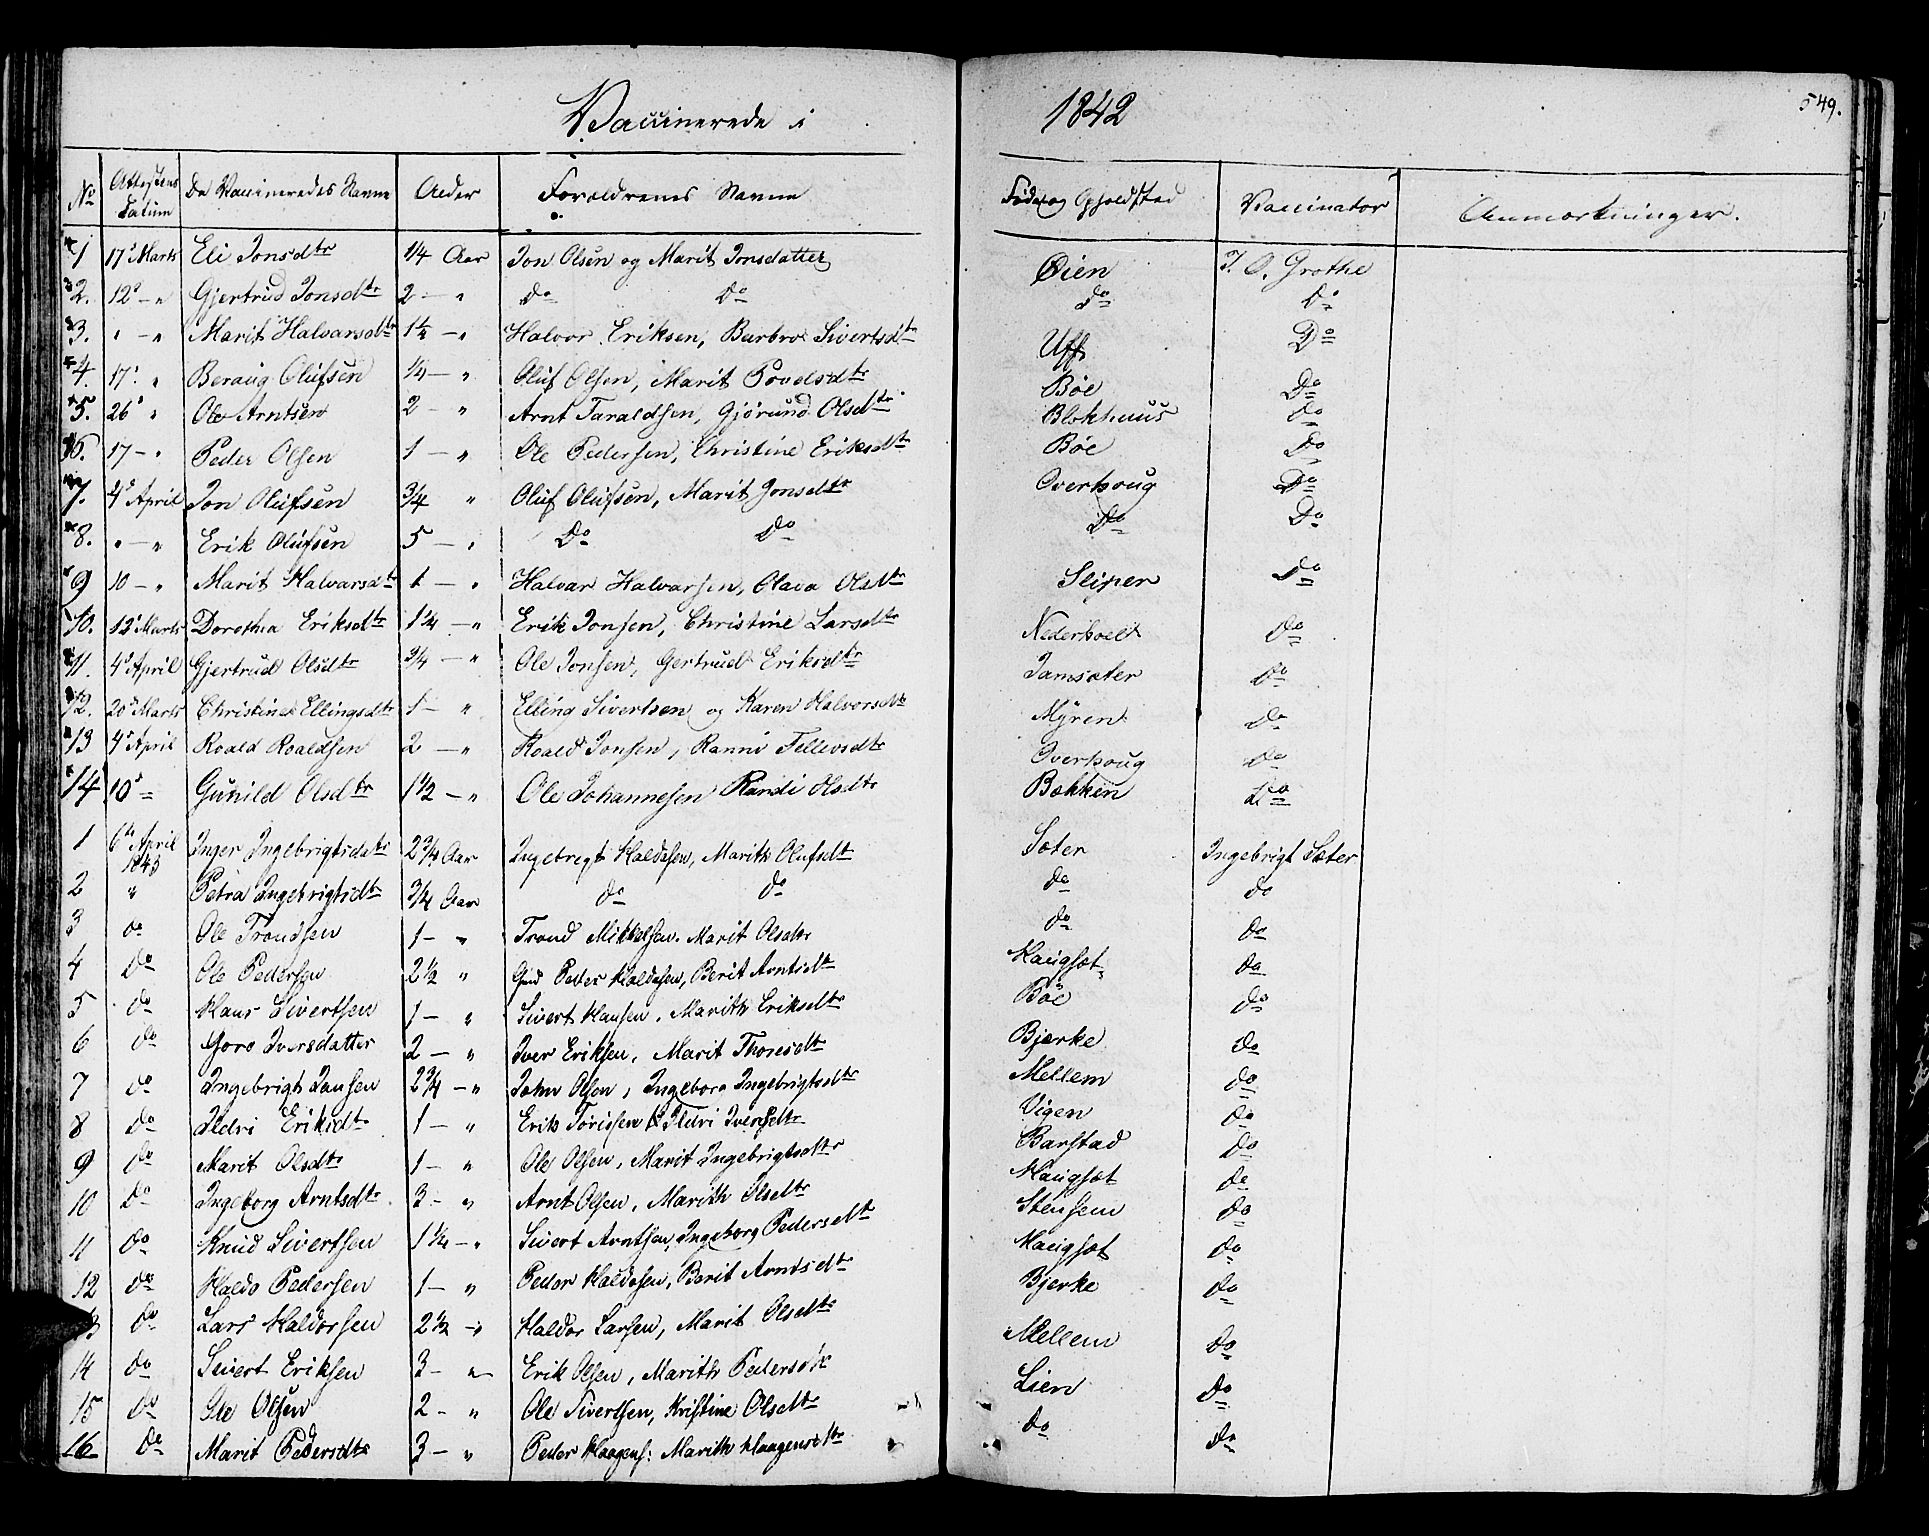 Vaccinerede i 1842
549.
No Attestens Datum De Vaccineredes Navne Alder Forældrenes Navne Føde og Opholdsted Vaccinator Anmærkninger.
1 17de Marts Eli Jonsdtr 1/4 Aar Jon Olsen og Marit Jonsdatter Øien J. O. Grothe
2. 12e - " Gjertrud Jonsdtr 2 - " Do Do Do Do
3. " - " Marit Halvarsdtr 1 1/2 - " Halvor Eriksen, Barbro Sivertsdtr Uff Do
4. 17. " Beraug Olufsen 1/4 - " Oluf Olsen, Marit Povelsdtr Bøe Do
5. 26e " Ole Arntsen 2 - " Arnt Taraldsen, Gjørund Olsdtr Blokhuus Do
6. 17 - " Peder Olsen 1 - " Ole Pedersen, Christine Eriksdtr Bøe Do
7. 4de April Jon Olufsen 3/4 " Oluf Olufsen, Marit Jonsdtr Overhoug Do
8. " - " Erik Olufsen 5 - " Do Do Do Do
9 10 - " Marit Halvarsdtr 1 - " Halvar Halvarsen, Olava Olsdtr Sliper Do
10. 12e Marts Dorothea Eriksdtr 1 1/4 - " Erik Jonsen, Christine Larsdtr Nederhoel Do
11. 4de April Gjertrud Olsdtr 3/4 - " Ole Jonsen, Gertrud Eriksdtr Jamsæter Do
12. 20de Marts Christine Ellingsdtr 1 - " Elling Sivertsen og Karen Halvorsdtr Myren Do
13 4de April Roald Roaldsen 2 - " Roald Jonsen, Ranni Tellevsdtr Overhoug Do
14 10e = Gunild Olsdtr 1 1/2 - " Ole Johannesen Randi Olsdtr Bækken Do
1 6te April 1843 Inger Ingebrigtsdatr 2 3/4 Aar Ingebregt Haldosen, Marith Olufsdtr Sæter Ingebrigt Sæter
2 " Petra Ingebrigtsdtr 3/4 Aar do do do do
3 do Ole Trondsen 1 - " Trond Mikkelsen. Marit Olsdtr do do
4 do Ole Pedersen 2 1/2 " Peder Haldosen, Berit Arntsdtr Haugsæt do
5 do Hans Sivertsen 1 - " Sivert Hansen, Marith Eriksdtr Bøe do
6 do Goro Iversdatter 2 - " Iver Eriksen, Marit Thoresdtr Bjerke do
7 do Ingebrigt Jansen 2 3/4 - " John Olsen, Ingeborg Ingebrigtsdtr Mellem do
8 do Ildri Eriksdtr 1 - " Erik Torissen & Ildri Iversdtr Vigen do
9 do Marit Olsdtr 1 - " Ole Olsen, Marit Ingebrigtsdtr Barstad do
10 do Ingeborg Arntsdtr 3 - " Arnt Olsen, Marith Olsdtr Haugsæt do
11 do Knud Sivertsen 1 1/4 - " Sivert Arntsen, Ingeborg Pedersdtr Stensem do
12 do Haldo Pedersen 1 - " Peder Haldosen, Berit Arntsdtr Haugsæt do
13 do Lars Haldorsen 2 1/2 - " Haldor Larsen, Marit Olsdtr Bjerke do
14 do Sivert Eriksen 3 - " Erik Olsen, Marith Pedersdtr Mellem do
15 do Ole Olsen 2 - " Ole Sivertsen, Kristine Olsdtr Lien do
16 do Marit Pedersdtr 3 - " Peder Haagens: Marith Haagensdtr do do